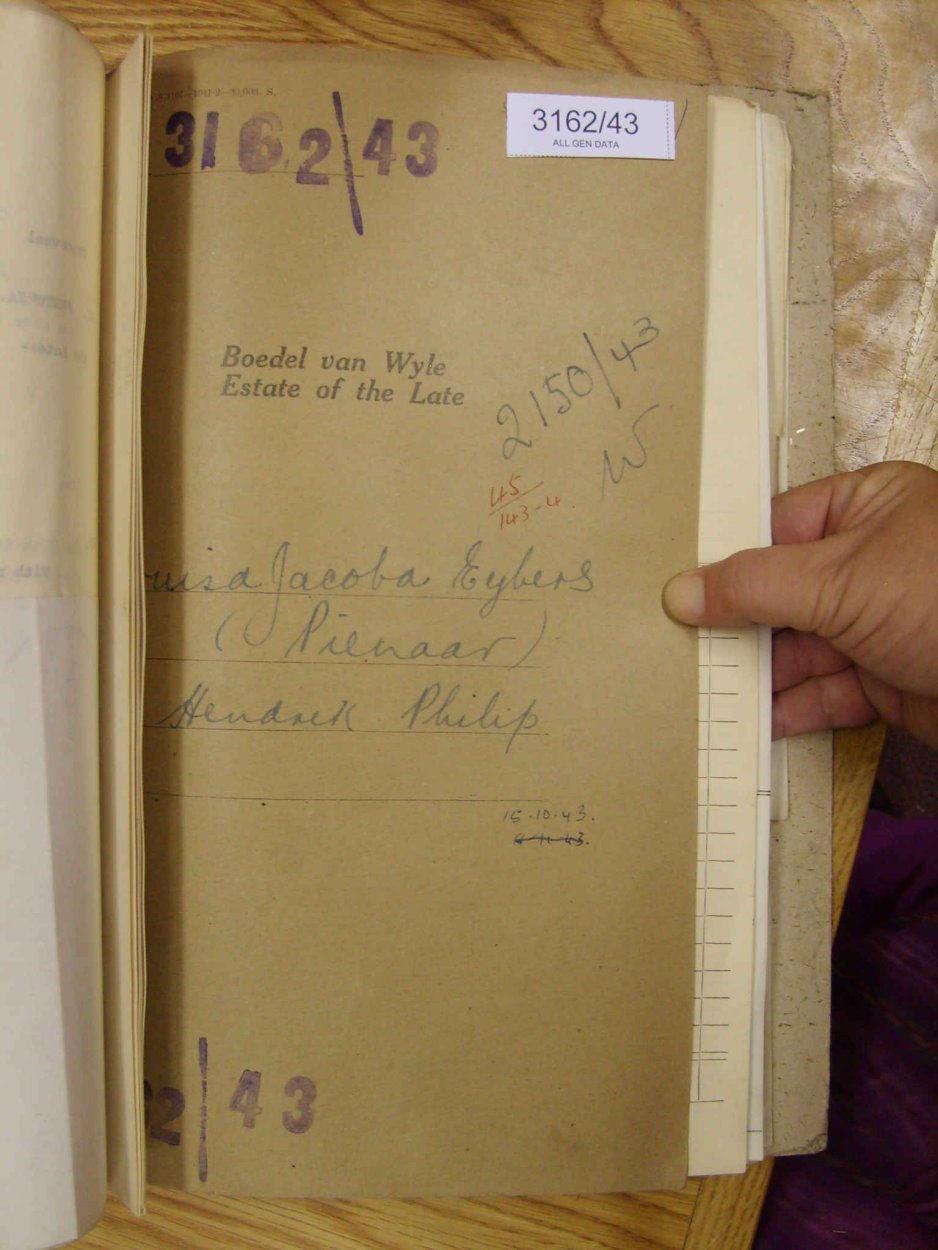 3162/43
3162/43
ALL GEN DATA
Boedel van Wyle
Estate of the Late
2150/43
W
45
143-4.
uisa Jacoba Eybers
(Pienaar)
Hendrik Philip
15.10.43.
2/43